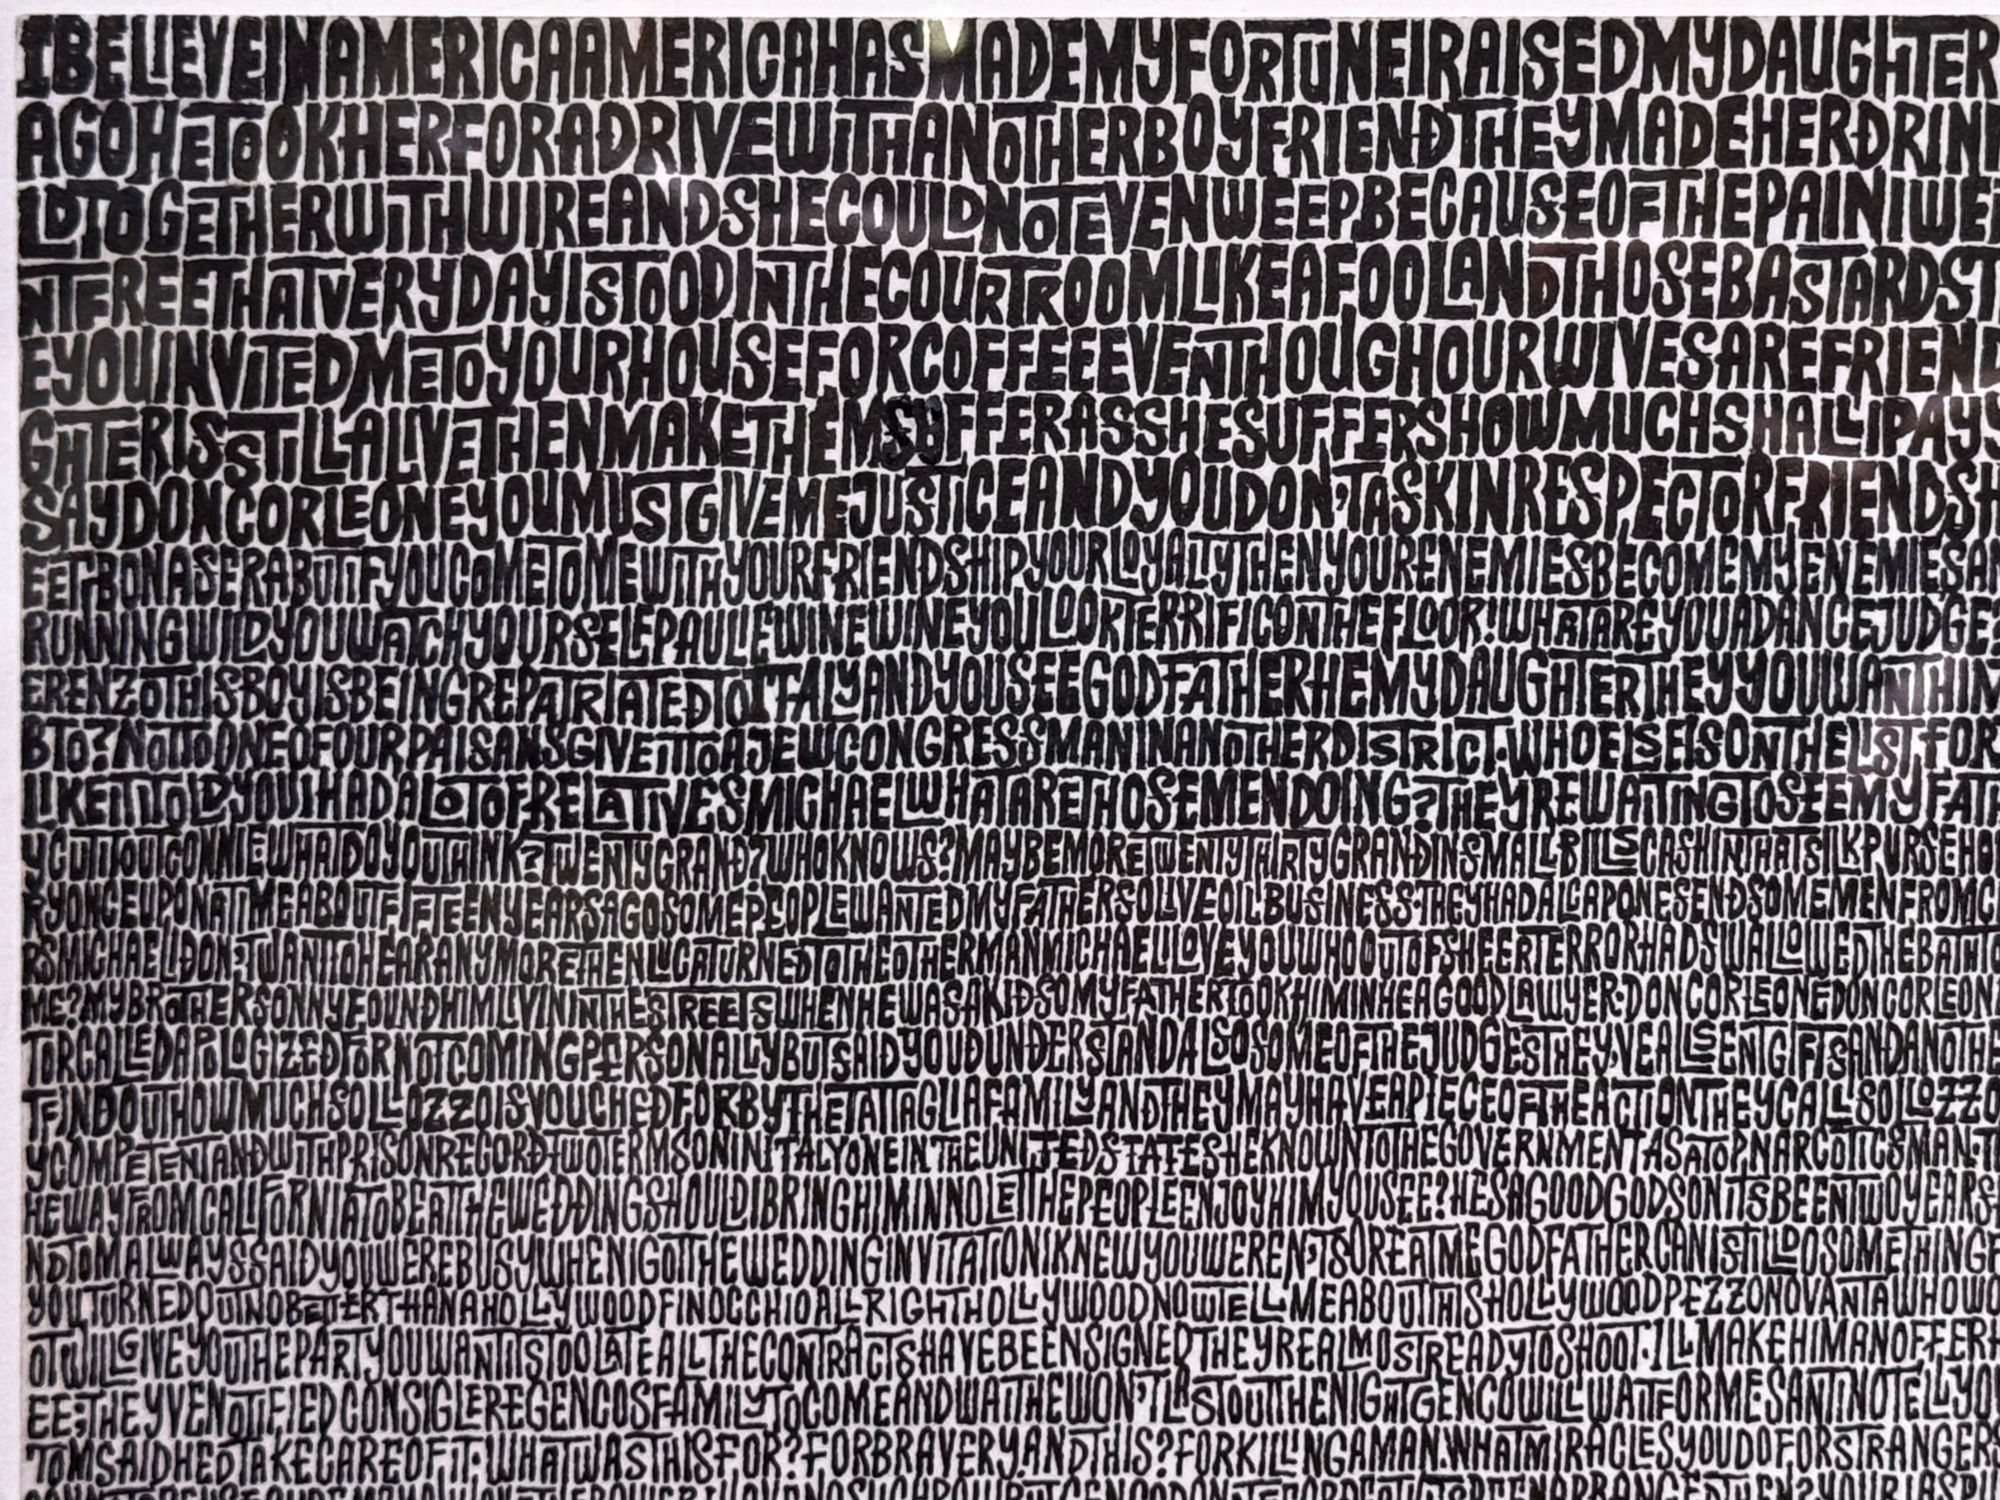 IBELIEVEINAMERICAAMERICAHASMADEMYFORTUNEIRAISEDMYDAUGHTER
AGOHETOOKHERFORADRIVEWITHANOTHERBOYFRIENDTHEYMADEHERDRIN
LDTOGETHERWITHWIREANDSHECOULDNOTEVENWEEPBECAUSEOFTHEPAINIWE
NTFREETHATVERYDAYISTOODINTHECOURTROOMLIKEAFOOLANDTHOSEBASTARDST
EYOUINVITEDMETOYOURHOUSEFORCOFFEEEVENTHOUGHOURWIVESAREFRIEND
GHTERISSTILLALIVETHENMAKETHEMSUFFERASSHESUFFERSHOWMUCHSHALLIPAYS
SAYDONCORLEONEYOUMUSTGIVEMEJUSTICEANDYOUDON'TASKINRESPECTORFRIENDSH
EET·BONASERABUTIFYOUCOMETOMEWITHYOURFRIENDSHIPYOURLOYALTYTHENYOURENEMIESBECOMEMYENEMIESAN
RUNNINGWILDYOUWATCHYOURSELFPAULIEWINEWINEYOULOOKTERRIFICONTHEFLOOR!WHATAREYOUADANCEJUDGE?
ERENZOTHISBOYISBEINGREPATRIATEDTOITALYANDYOUSEEGODFATHERHEMYDAUGHTERTHEYYOUWANTHIM
BTO?NOTTOONEOFOURPAISANSGIVEITTOAJEWCONGRESSMANINANOTHERDISTRICT·WHOELSEISONTHELISTFOR
LIKEITTOLDYOUIHADALOTOFRELATIVESMICHAELWHATARETHOSEMENDOING?THEYREWAITINGTOSEEMYFATH
YGUTTOUTCONNIEWHATDOYOUTHINK?TWENTYGRAND?WHOKNOWS?MAYBEMORETWENTYTHIRTYGRANDINSMALLBILLSCASHINTHATSILKPURSEHO
RYONCEUPONATIMEABOUTFIFTEENYEARSAGOSOMEPEOPLEWANTEDMYFATHERSOLIVEOILBUSINESS·THEYHADALCAPONESENDSOMEMENFROMC
RSMICHAELIDON'TWANTTOHEARANYMORETHENLUCATURNEDTOTHEOTHERMANMICHAELILOVEYOUWHOOUTOFSHEERTERRORHADSWALLOWEDTHEBATHTO
ME?MYBROTHERSONNYFOUNDHIMLIVININTHESTREETSWHENHEWASAKIDSOMYFATHERTOOKHIMINHEAGOODLAWYER·DONCORLEONEDONCORLEON
TORCALLEDAPOLOGIZEDFORNOTCOMINGPERSONALLYBUTSAIDYOUDUNDERSTANDALSOSOMEOFTHEJUDGESTHEY'VEALLSENTGIFTSANDANOTHE
TFINDOUTHOWMUCHSOLLOZZOISVOUCHEDFORBYTHETATTAGLIAFAMILYANDTHEYMAYHAVEAPIECEOFTHEACTIONTHEYCALLSOLLOZZO
YCOMPETENTANDWITHPRISONRECORDTWOTERMSONINITALYONEINTHEUNITEDSTATESHEKNOWNTOTHEGOVERNMENTASATOPNARCOTICSMAN·T
HEWAYFROMCALIFORNIATOBEATTHEWEDDINGSHOULDIBRINGHIMINNOLETTHEPEOPLEENJOYHIMYOUSEE?HESAGOODGODSONITSBEENTWOYEARS
NDTOMALWAYSSAIDYOUWEREBUSYWHENIGOTTHEWEDDINGINVITATIONIKNEWYOUWEREN'TSOREATMEGODFATHERCANISTILLDOSOMETHINGF
YOUTURNEDOUTNOBETTERTHANAHOLLYWOODFINOCCHIOALLRIGHTHOLLYWOODNOWTELLMEABOUTTHISHOLLYWOODPEZZONOVANTAWHOWO
OTWILLGIVEYOUTHEPARTYOUWANTITSTOOLATEALLTHECONTRACTSHAVEBEENSIGNEDTHEYREALMOSTREADYTOSHOOT·ILLMAKEHIMANOFFERH
EE;THEYVENOTIFIEDCONSIGLEREGENCOSFAMILYTOCOMEANDWAITHEWON'TLASTOUTTHENIGHTGENCOWILLWAITFORMESANTINOTELLYO
TOMSAIDHEDTAKECAREOFIT·WHATWASTHISFOR?FORBRAVERY.ANDTHIS?FORKILLINGAMAN.WHATMIRACLESYOUDOFORSTRANGERS